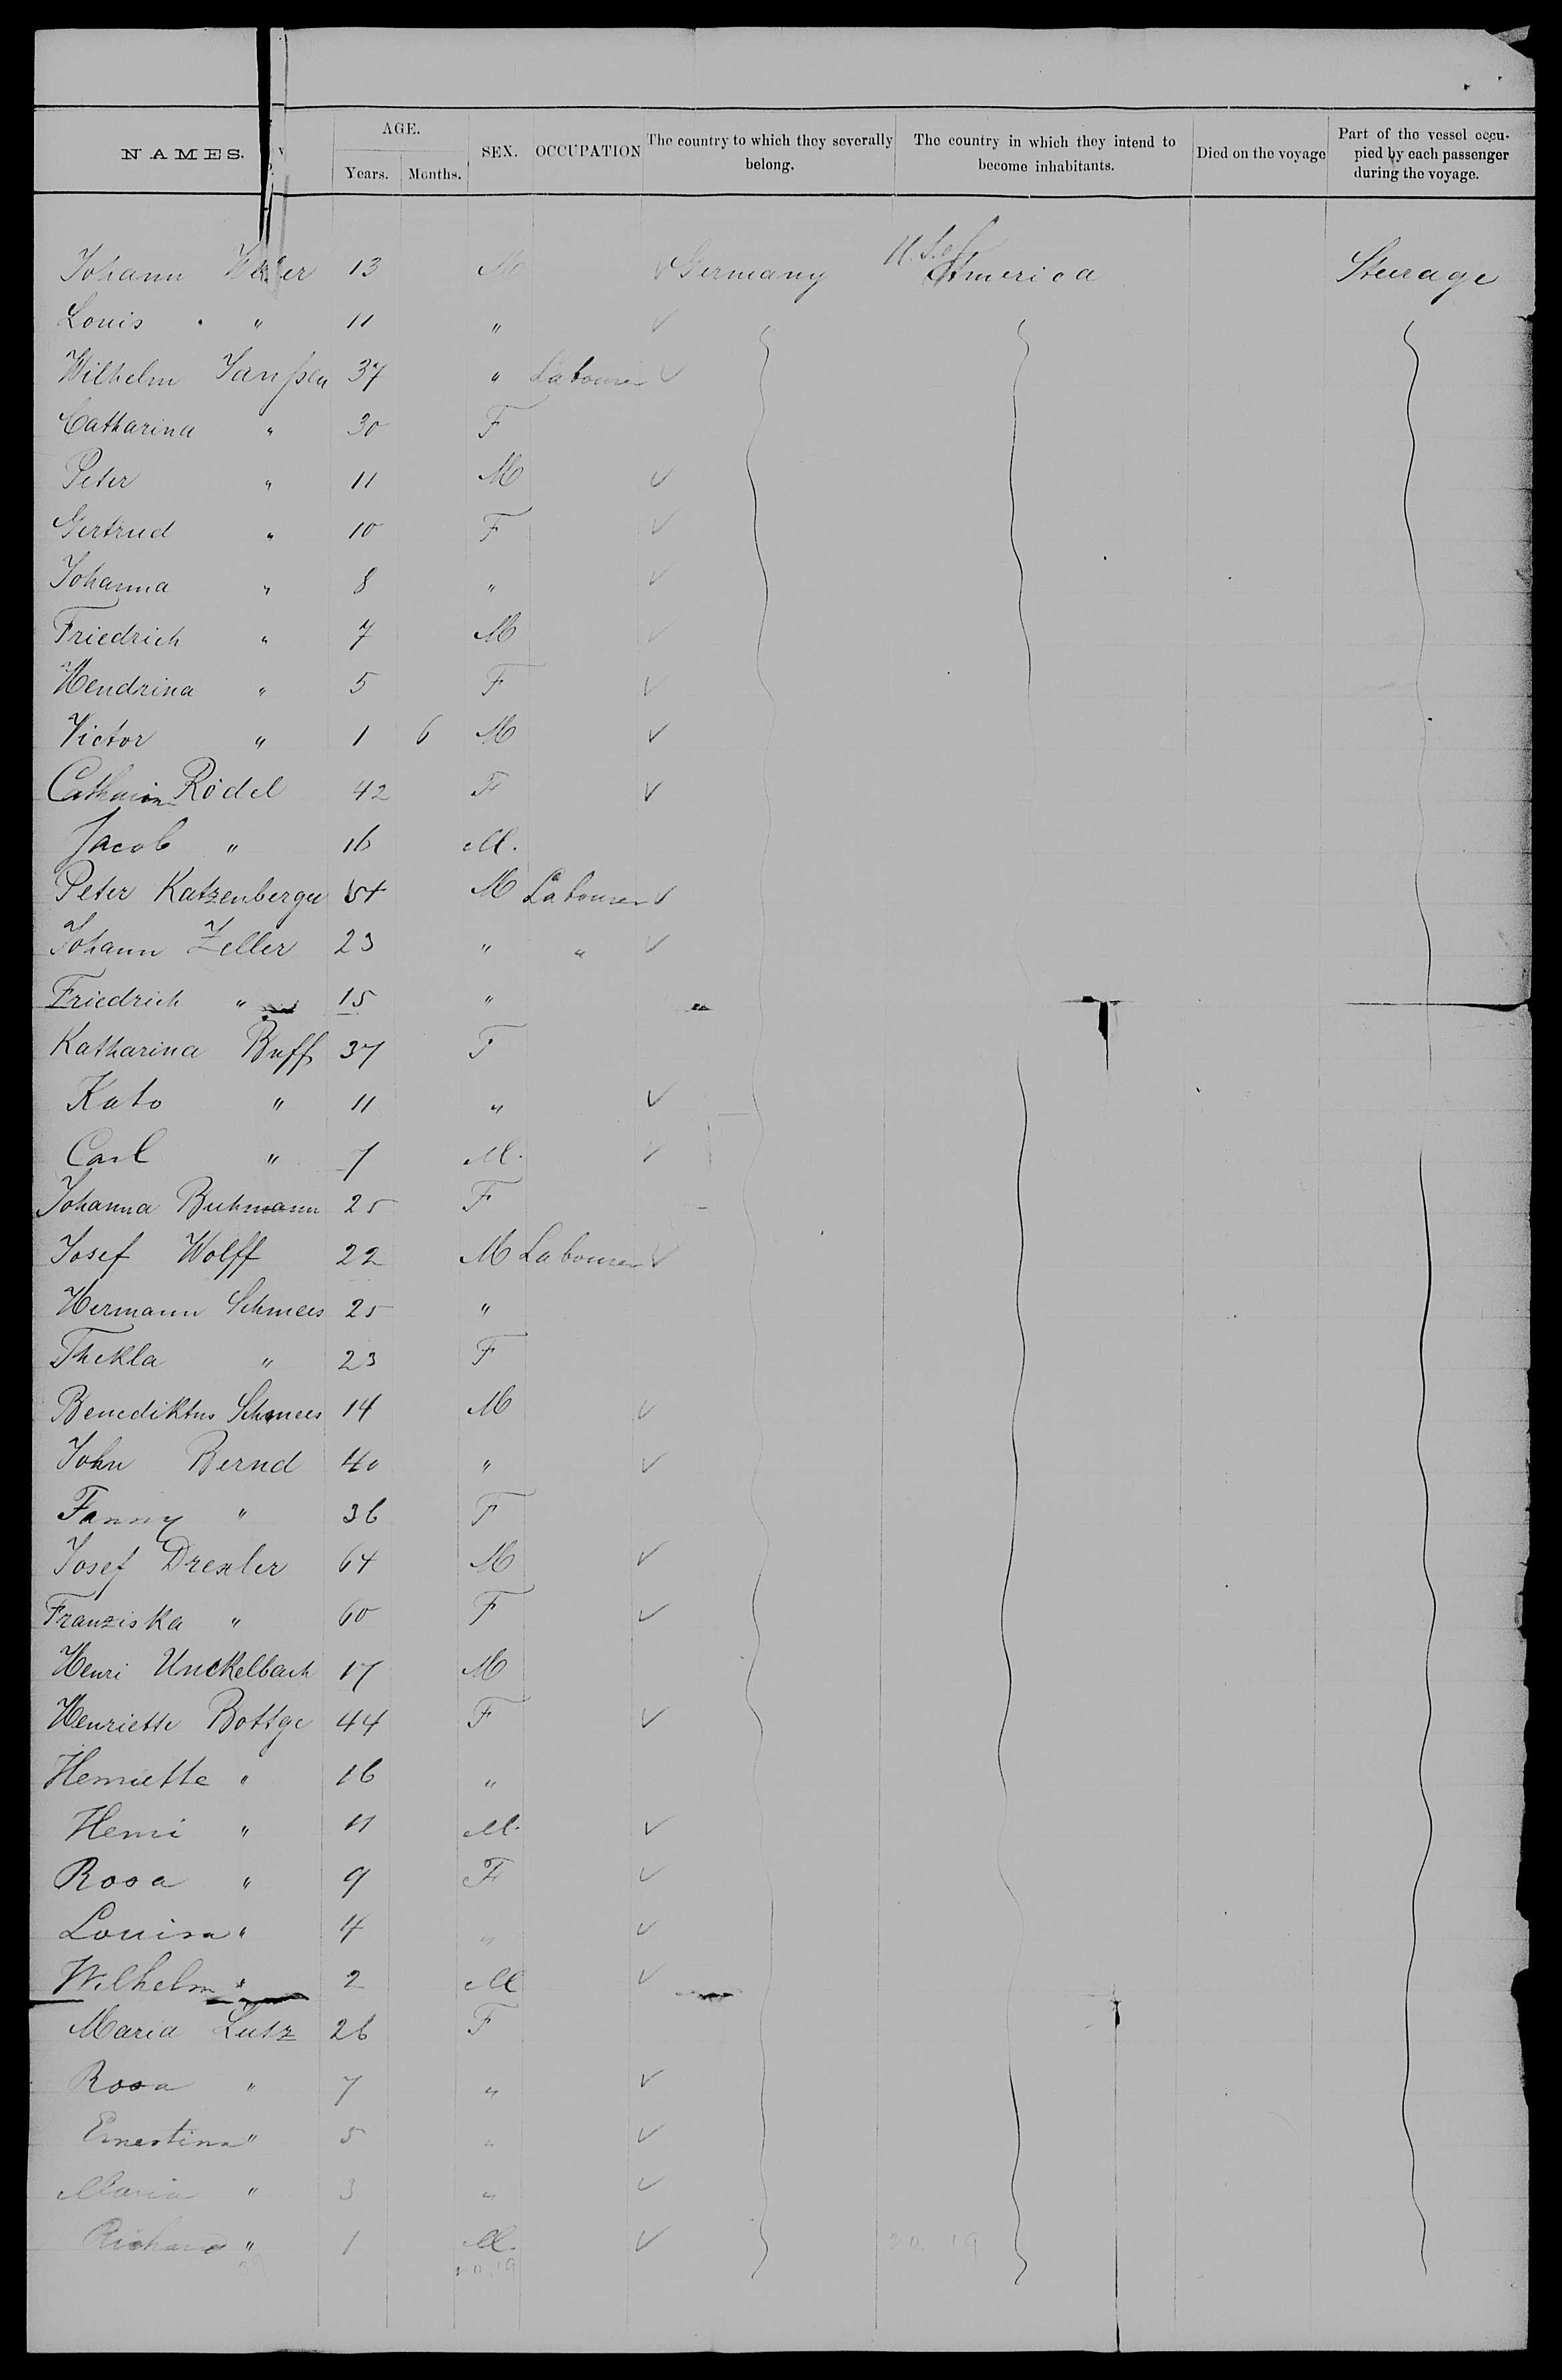 NAMES. AGE. Years. Months. SEX. OCCUPATION The country to which they severally belong. The country in which they intend to become inhabitants. Died on the voyage Part of the vessel occupied by each passenger during the voyage.
Johann 13 M Germany U.S. of America Steerage
Louis " 11 "
Wilhelm Janßen 37 " Labourer
Catharina " 30 F
Peter " 11 M
Gertrud " 10 F
Johanna " 8 "
Friedrich " 7 M
Hendrina " 5 F
Victor " 1 6 M
Catharina Rödel 42 F
Jacob " 16 M.
Peter Katzenberger 54 M Labourer
Johann Zeller 23 " "
Friedrich " 15 "
Katharina Buff 37 F
Kato " 11 "
Carl " 7 M.
Johanna Buhmann 25 F
Josef Wolff 22 M Labourer
Hermann Schmees 25 "
Thekla " 23 F
Benediktus Schmees 14 M
John Bernd 40 "
Fanny " 36 F
Josef Drexler 64 M
Franziska " 60 F
Henri Unckelbach 17 M
Henriette Bottge 44 F
Henriette " 16 "
Henri " 11 M.
Rosa " 9 F
Louisa " 4 "
Wilhelm " 2 M
Maria Lutz 26 F
Rosa " 7 "
Ernestina " 5 "
Maria " 3 "
Richard " 1 M. 20.19
39 20.19